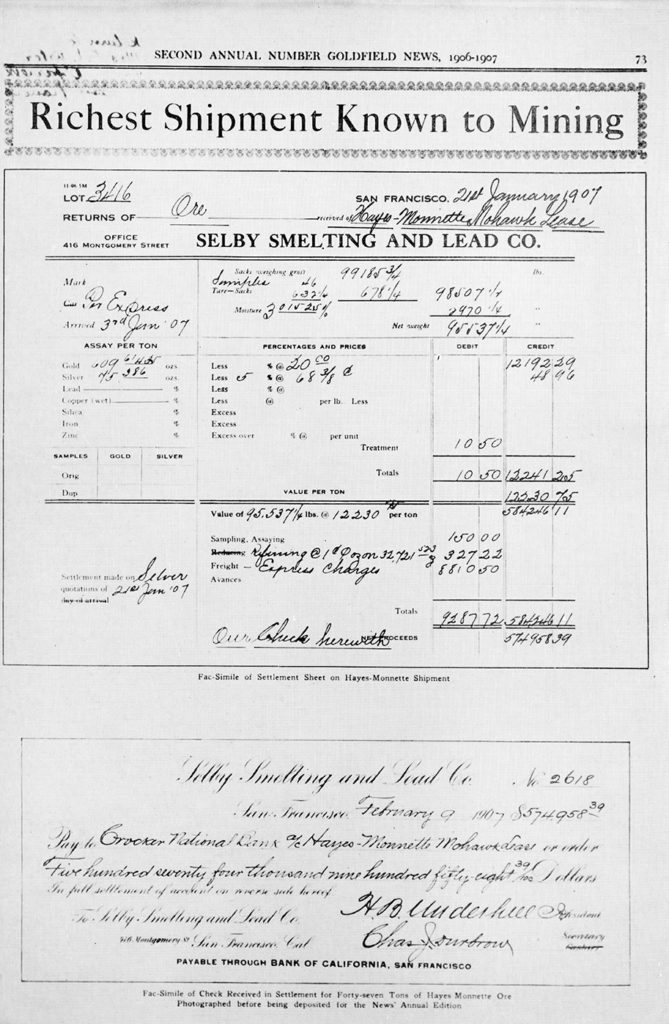 SECOND ANNUAL NUMBER GOLDFIELD NEWS, 1906-1907 73
Richest Shipment Known to Mining
LOT 3416 SAN FRANCISCO. 21st January 1907
RETURNS OF Ore received of Hayes-Monnette Mohawk Lease
OFFICE
416 MONTGOMERY STREET SELBY SMELTING AND LEAD CO.
Mark Sacks weighing gross 99185 3/4 lbs.
Samples 46
Per Express Tare—Sacks 632 1/4 678 1/4 98507 1/2
Moisture 3 2970 1/4 "
Arrived 3rd Jan '07 Net weight 95537 1/4 "
ASSAY PER TON PERCENTAGES AND PRICES DEBIT CREDIT
Gold 609 ozs. Less % @ 20 00 12192 29
Silver 75 386 ozs. Less 5 % @ 68 3/8 ¢ 48 96
Lead % Less % @
Copper (wet) % Less @ per lb. Less
Silica % Excess
Iron % Excess
Zinc % Excess over % @ per unit
Treatment 10 50
SAMPLES GOLD SILVER
Totals 10 50 12241 25
Orig
Dup. VALUE PER TON 12230 75
Value of 95,537 1/4 lbs. @ 12230 75 per ton 584246 11
Sampling, Assaying 150 00
Refining @ 1¢ p oz on 32,721 327 22
Settlement made on Silver Freight — Express Charges 8810 50
quotations of 21st Jan '07 Avances
day of arrival
Totals 9287 72 584246 11
Our Check herewith NET PROCEEDS 574958 39
Fac-Simile of Settlement Sheet on Hayes-Monnette Shipment
Selby Smelting and Lead Co. No. 2618
San Francisco, February 9 1907 $574958 39
Pay to Crocker National Bank a/c Hayes-Monnette Mohawk Lease or order
Five hundred seventy four thousand nine hundred fifty-eight 39/100 Dollars
In full settlement of account on reverse side hereof
To Selby Smelting and Lead Co. H.B. Underhill President
416 Montgomery St San Francisco, Cal Chas J. Durbrow Secretary
PAYABLE THROUGH BANK OF CALIFORNIA, SAN FRANCISCO
Fac-Simile of Check Received in Settlement for Forty-seven Tons of Hayes Monnette Ore
Photographed before being deposited for the News' Annual Edition